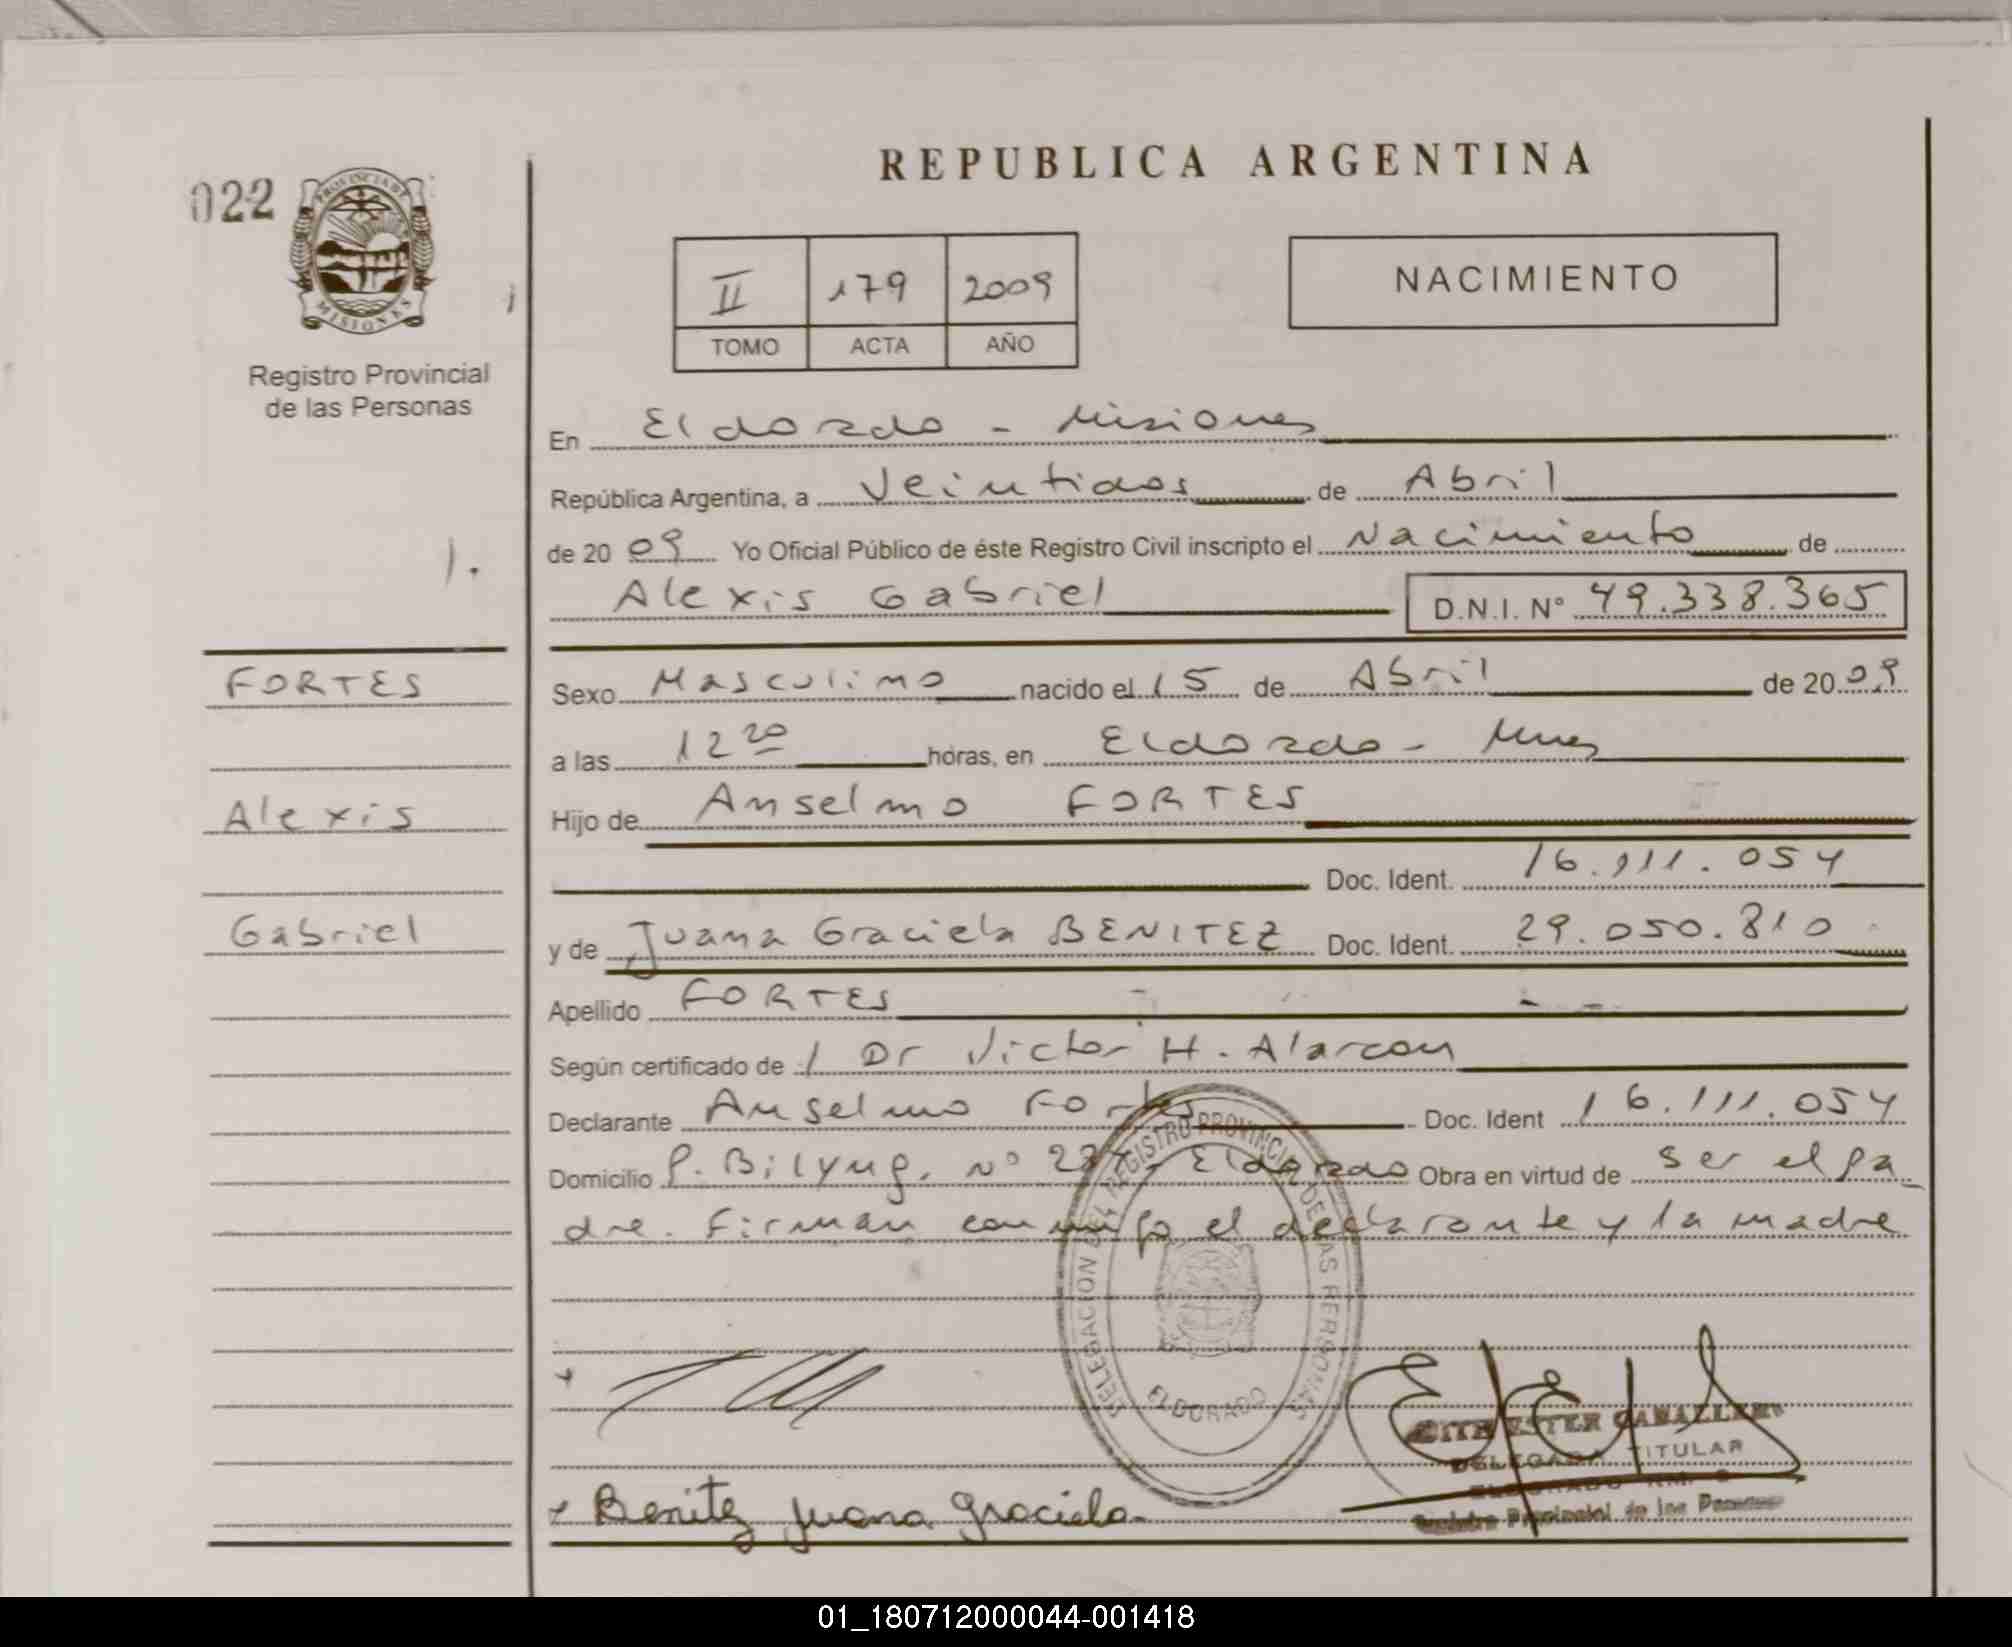 022
PROVINCIA DE
MISIONES
Registro Provincial
de las Personas
REPUBLICA ARGENTINA
II 179 2009
TOMO ACTA AÑO
NACIMIENTO
En Eldorado - Misiones
República Argentina, a Veintidos de Abril
de 2009 Yo Oficial Público de éste Registro Civil inscripto el Nacimiento de
Alexis Gabriel D.N.I. Nº 49.338.365
FORTES
Alexis
Gabriel
Sexo Masculino nacido el 15 de Abril de 2009
a las 12 20 horas, en Eldorado - Mnes
Hijo de Anselmo FORTES
Doc. Ident. 16.111.054
y de Juana Graciela BENITEZ Doc. Ident. 29.050.810
Apellido FORTES
Según certificado de / Dr Victor H. Alarcon
Declarante Anselmo Fortes Doc. Ident 16.111.054
Domicilio P. Nº Eldorado Obra en virtud de ser el pa
dre. Firman conmigo el declarante y la madre
DELEGACION DEL REGISTRO PROVINCIAL DE LAS PERSONAS
ELDORADO
ESTER CABALLERO
DELEGADA TITULAR
ELDORADO KM.
Registro Provincial de las Personas
Benitez Juana Graciela
01_180712000044-001418